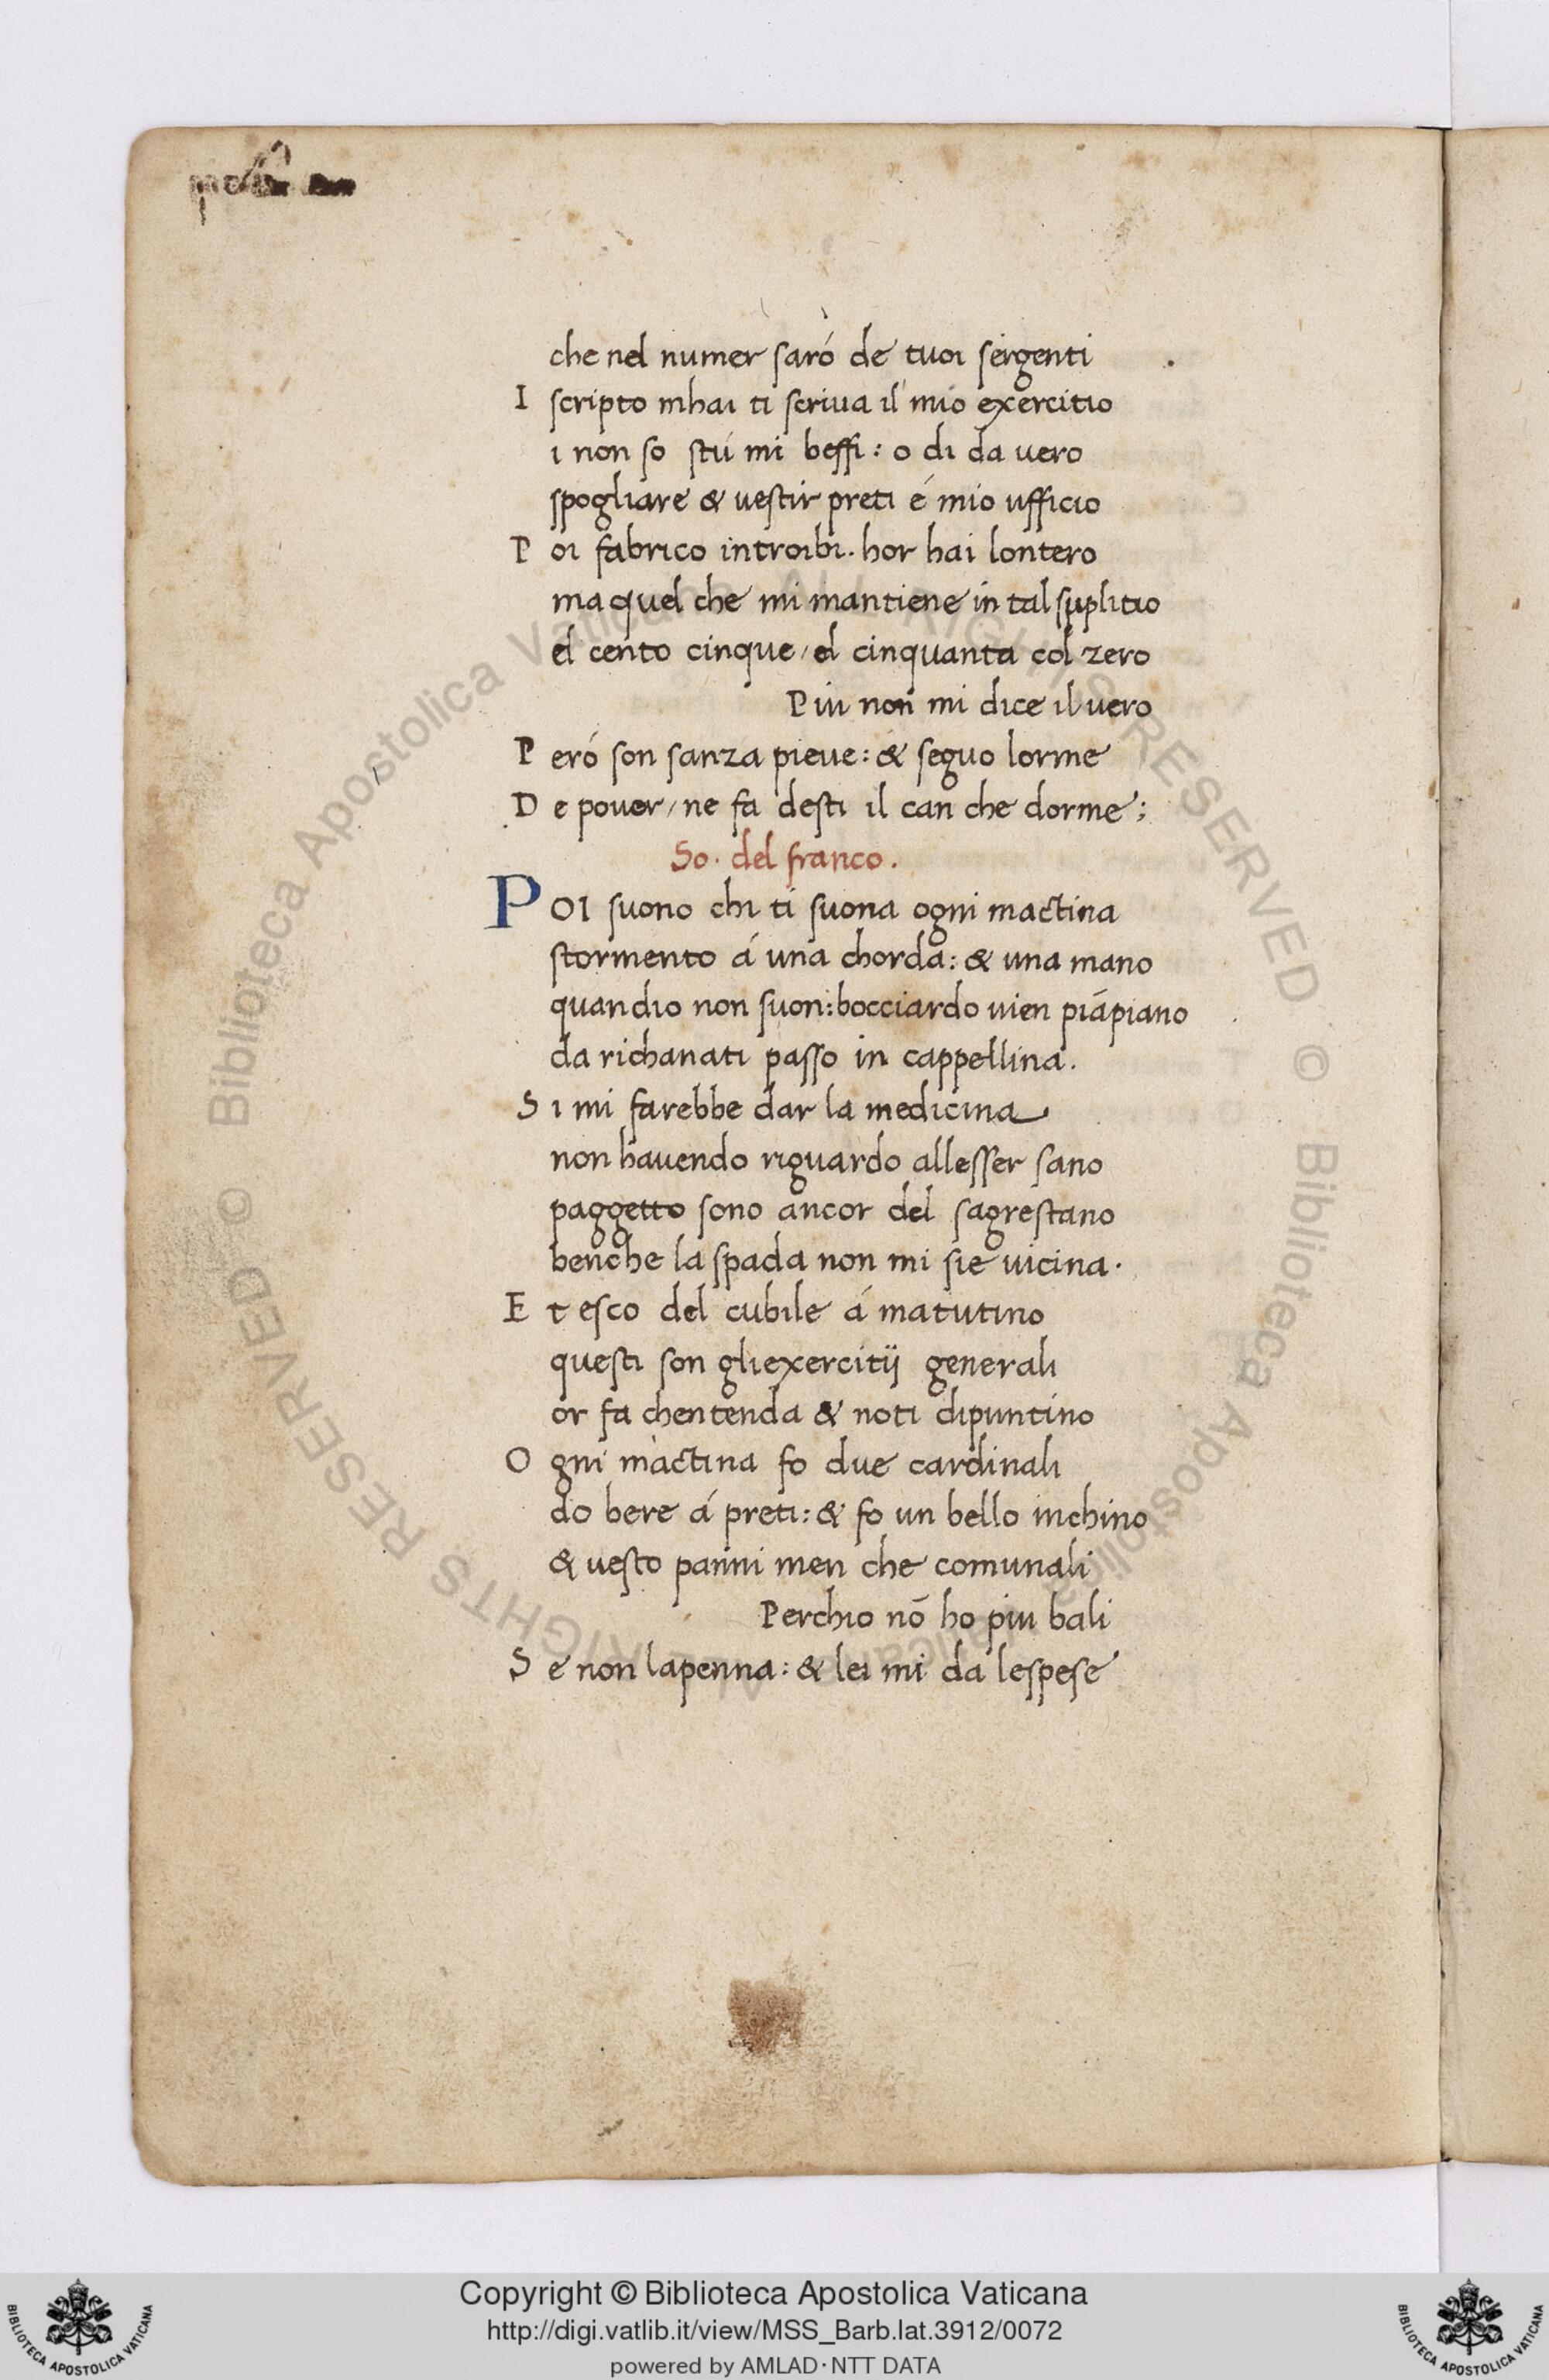 che nel numer saró de tuoi sergenti
I scripto mhai ti scriva il mio exercitio
i non so stú mi beffi: o di da vero
spogliare & vestir preti é mio ufficio
P oi fabrico introibi. hor hai lontero
ma quel che mi mantiene in tal suplitio
el cento cinque / el cinquanta col zero
Piu non mi dice il vero
P eró son sanza pieve: & seguo lorme
D e pover / ne fa desti il can che dorme;
So. del franco.
POI suono chi ti suona ogni mactina
stormento á una chorda: & una mano
quandio non suon: bocciardo vien piápiano
da richanati passo in cappellina.
S i mi farebbe dar la medicina
non havendo riguardo allesser sano
paggetto sono ancor del sagrestano
benche la spada non mi sie vicina.
E t esco del cubile á matutino
questi son gliexercitij generali
or fa chentenda & noti dipuntino
O gni mactina fo due cardinali
do bere á preti: & fo un bello inchino
& vesto panni men che comunali
Perchio nō ho piu bali
S e non lapenna: & lei mi da lespese
© Biblioteca Apostolica Vaticana ALL RIGHTS RESERVED © Biblioteca Apostolica Vaticana ALL RIGHTS RESERVED
Copyright © Biblioteca Apostolica Vaticana
http://digi.vatlib.it/view/MSS_Barb.lat.3912/0072
powered by AMLAD·NTT DATA
BIBLIOTECA APOSTOLICA VATICANA
BIBLIOTECA APOSTOLICA VATICANA